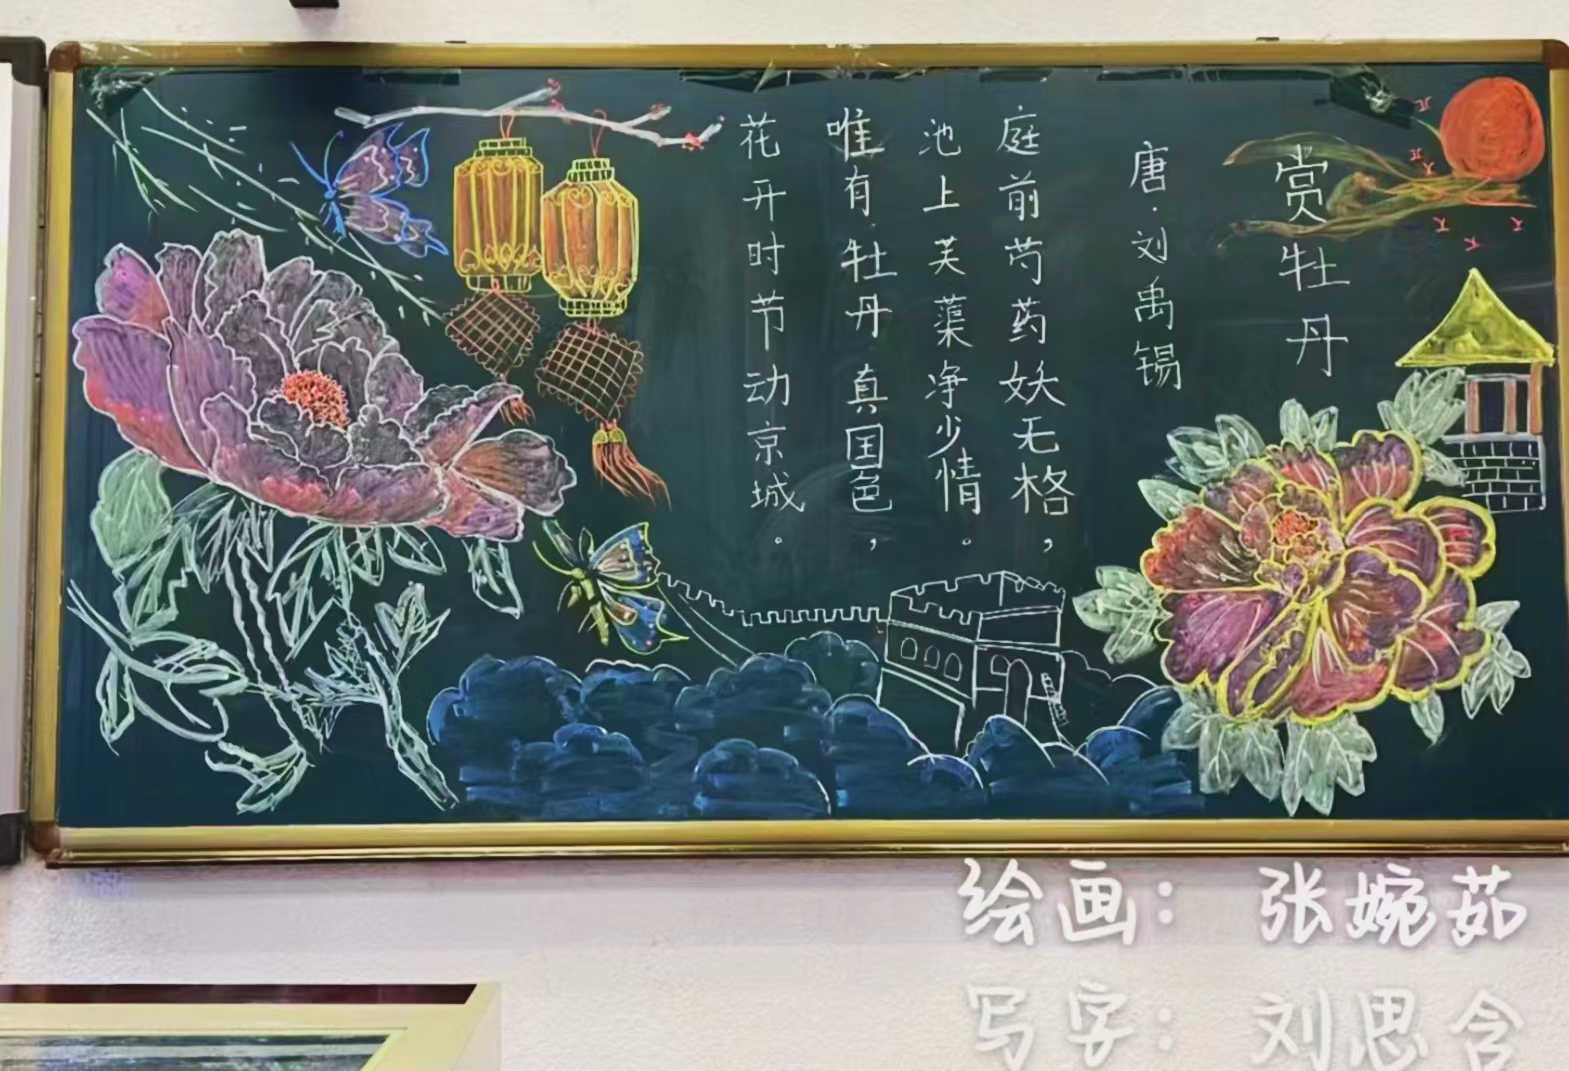 赏牡丹
唐·刘禹锡
庭前芍药妖无格，
池上芙蕖净少情。
唯有牡丹真国色，
花开时节动京城。
绘画：张婉茹
写字：刘思含